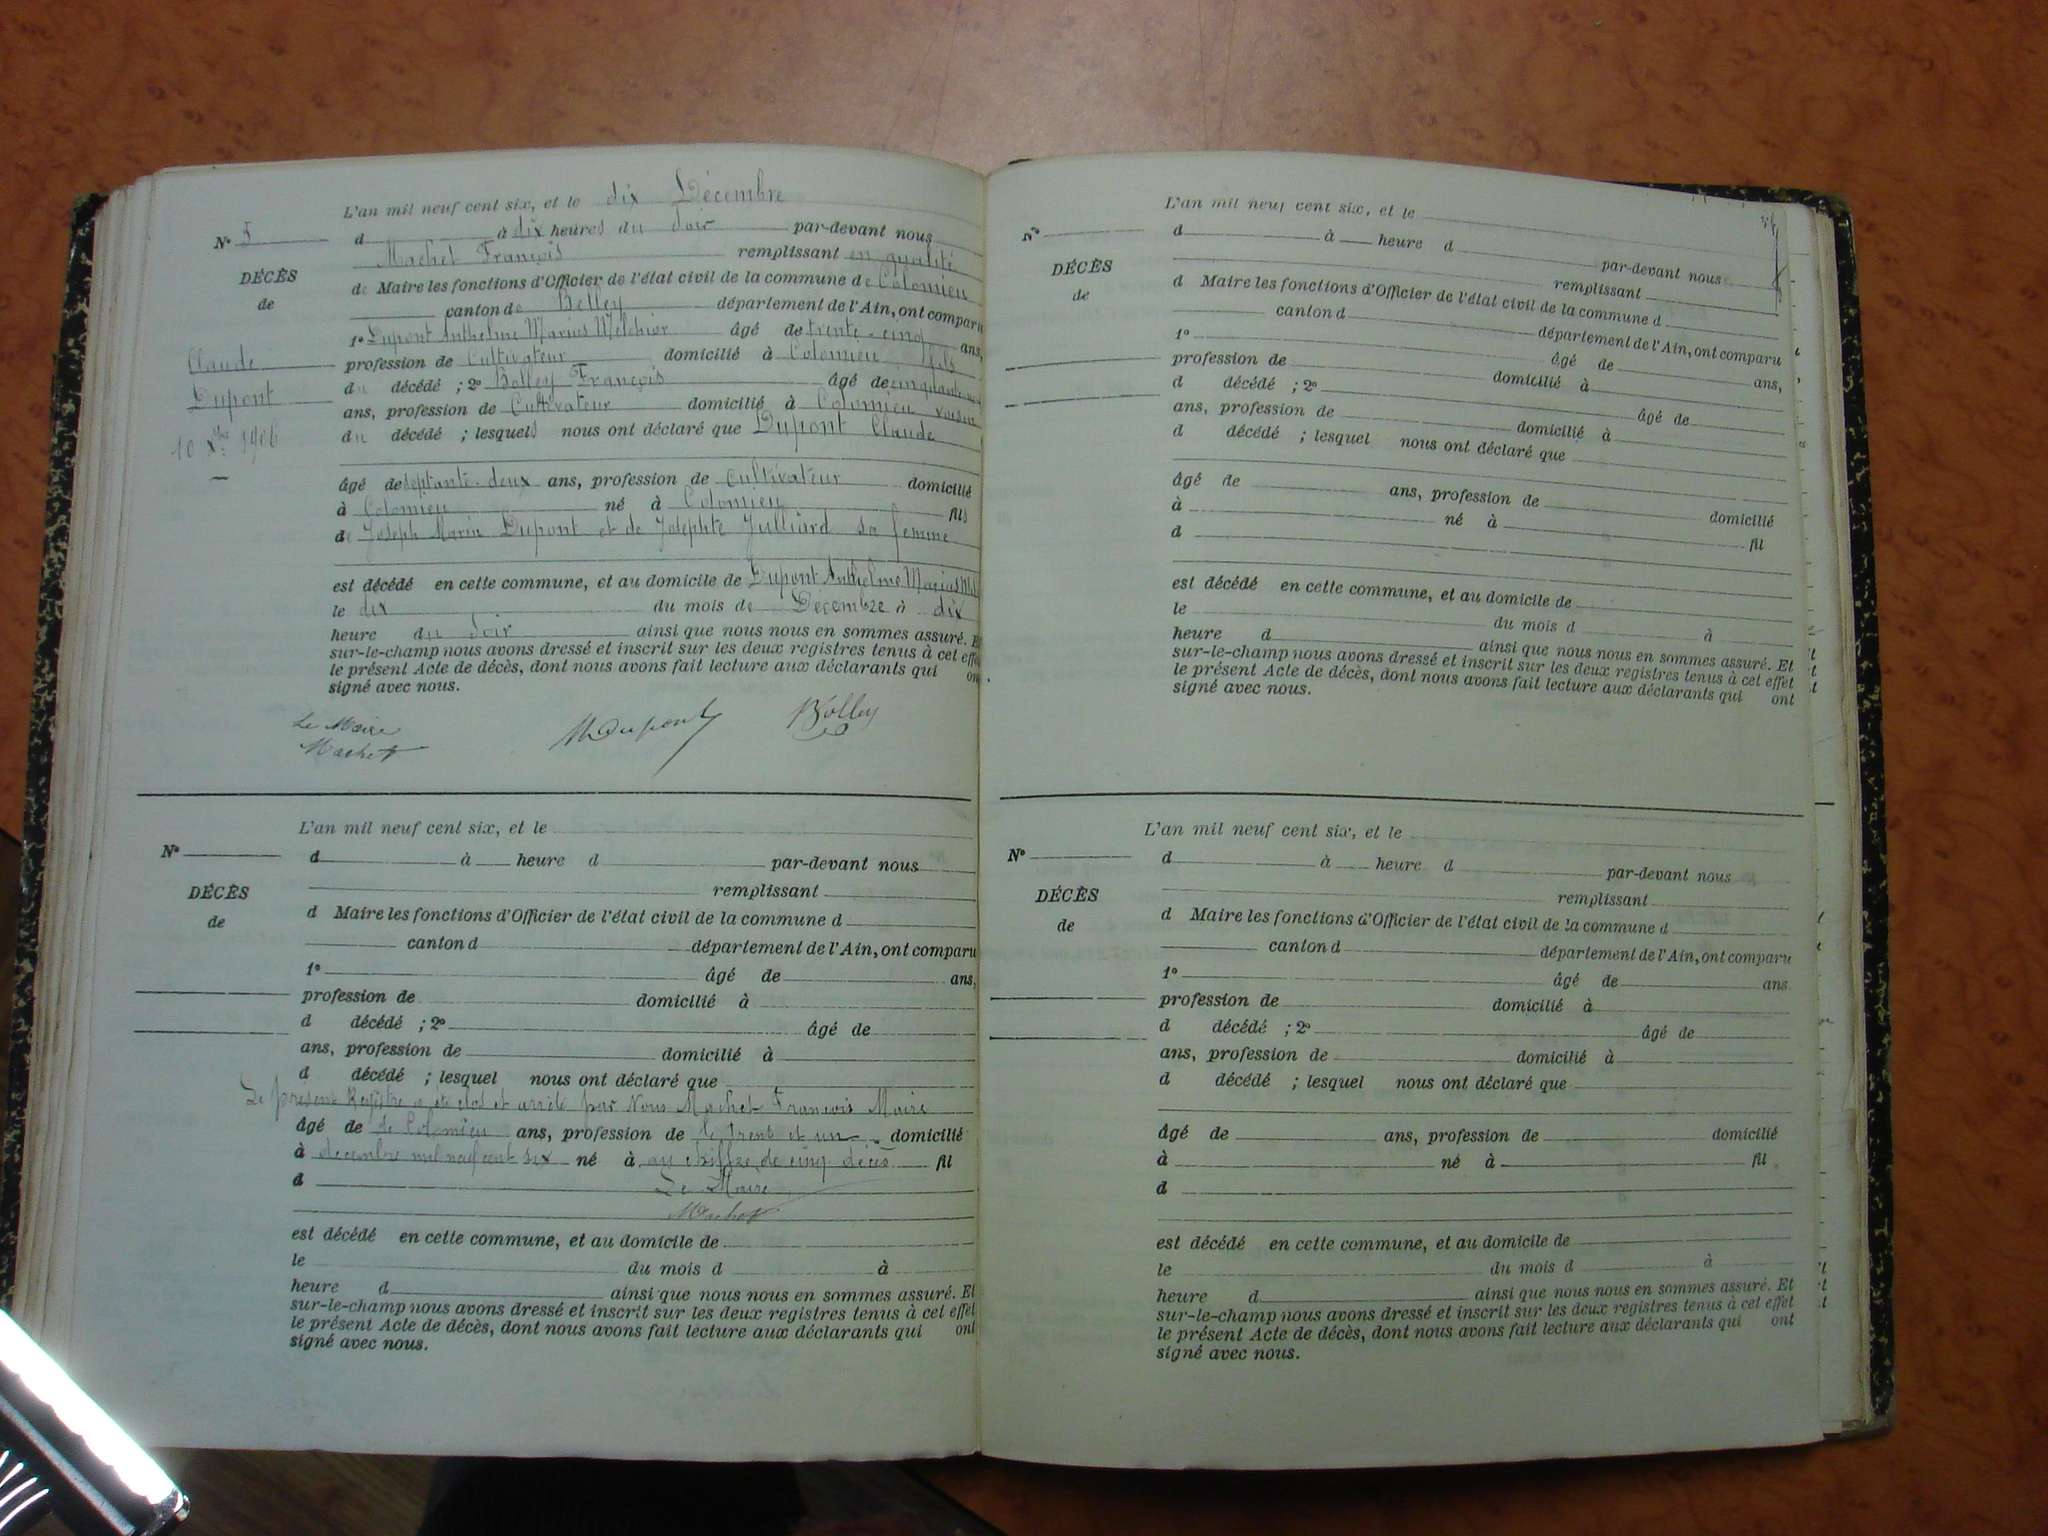 L'an mil neuf cent six, et le dix Décembre
N° 5
d à dix heures du soir par-devant nous
Machet François remplissant en qualité
DÉCÈS
de Maire les fonctions d'Officier de l'état civil de la commune de Colomieu
de
canton de Belley département de l'Ain, ont comparu
1° Dupont Anthelme Marius Melchior âgé de trente-cinq ans,
Claude
profession de Cultivateur domicilié à Colomieu fils
Dupont
du décédé ; 2° Bolley François âgé de cinquante
ans, profession de Cultivateur domicilié à Colomieu voisin
10 Xbre 1906
du décédé ; lesquels nous ont déclaré que Dupont Claude
âgé de septante-deux ans, profession de Cultivateur domicilié
à Colomieu né à Colomieu fils
de Joseph Marin Dupont et de Josephte Julliard sa femme
est décédé en cette commune, et au domicile de Dupont Anthelme Marius
le dix du mois de Décembre à dix
heure du soir ainsi que nous nous en sommes assuré. Et
sur-le-champ nous avons dressé et inscrit sur les deux registres tenus à cet effet
le présent Acte de décès, dont nous avons fait lecture aux déclarants qui ont
signé avec nous.
Le Maire
Machet
M Dupont
Bolley
L'an mil neuf cent six, et le
N°
d à heure d par-devant nous
remplissant
DÉCÈS
d Maire les fonctions d'Officier de l'état civil de la commune d
de
canton d département de l'Ain, ont comparu
1° âgé de ans,
profession de domicilié à
d décédé ; 2° âgé de
ans, profession de domicilié à
d décédé ; lesquel nous ont déclaré que
Le présent Registre a été clos et arrêté par Nous Machet François Maire
âgé de de Colomieu ans, profession de le trent et un domicilié
à décembre mil neuf cent six né à au chiffre de cinq décès fil
d Le Maire
Machet
est décédé en cette commune, et au domicile de
le du mois d à
heure d ainsi que nous nous en sommes assuré. Et
sur-le-champ nous avons dressé et inscrit sur les deux registres tenus à cet effet
le présent Acte de décès, dont nous avons fait lecture aux déclarants qui ont
signé avec nous.
L'an mil neuf cent six, et le
N°
d à heure d par-devant nous
remplissant
DÉCÈS
d Maire les fonctions d'Officier de l'état civil de la commune d
de
canton d département de l'Ain, ont comparu
1° âgé de ans,
profession de domicilié à
d décédé ; 2° âgé de
ans, profession de domicilié à
d décédé ; lesquel nous ont déclaré que
âgé de ans, profession de domicilié
à né à fil
d
est décédé en cette commune, et au domicile de
le du mois d à
heure d ainsi que nous nous en sommes assuré. Et
sur-le-champ nous avons dressé et inscrit sur les deux registres tenus à cet effet
le présent Acte de décès, dont nous avons fait lecture aux déclarants qui ont
signé avec nous.
L'an mil neuf cent six, et le
N°
d à heure d par-devant nous
remplissant
DÉCÈS
d Maire les fonctions d'Officier de l'état civil de la commune d
de
canton d département de l'Ain, ont comparu
1° âgé de ans
profession de domicilié à
d décédé ; 2° âgé de
ans, profession de domicilié à
d décédé ; lesquel nous ont déclaré que
âgé de ans, profession de domicilié
à né à fil
d
est décédé en cette commune, et au domicile de
le du mois d à
heure d ainsi que nous nous en sommes assuré. Et
sur-le-champ nous avons dressé et inscrit sur les deux registres tenus à cet effet
le présent Acte de décès, dont nous avons fait lecture aux déclarants qui ont
signé avec nous.